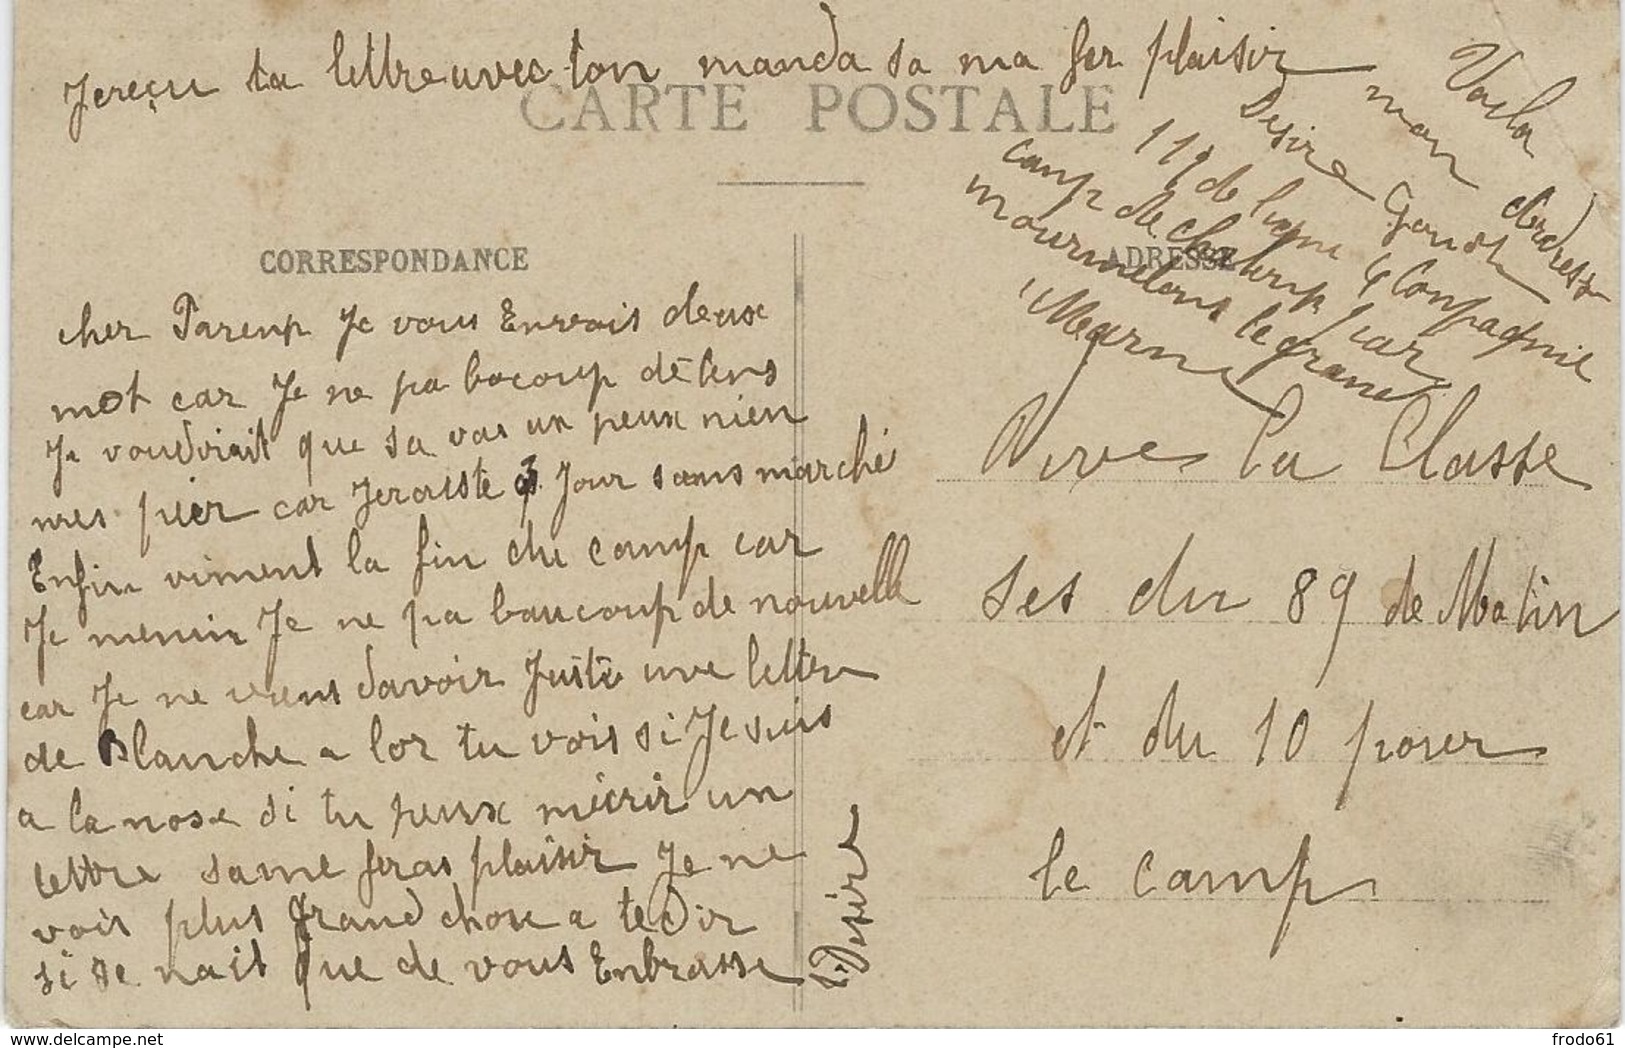 Je reçu ta lettre avec ton manda sa ma fer plaisir
Voila
mon adresse
Desire
119 de ligne 4 Compagnie
camp de chalump par
mourmelons le grand
Marne
CARTE POSTALE
CORRESPONDANCE
ADRESSE
cher Parenp Je vous Envois deux
mot car Je ne pa bocoup de tens
Je voudriait que sa vas un peux mien
mes pier car Jeraiste 3 Jour sans marché
Enfin viment la fin du camp car
Je menuir Je ne pa baucoup de nouvelle
car Je ne viens davoir Juste une lettre
de Blanche a lor tu vois si Je suis
a la nose si tu peux mécrir un
lettre same feras plaisir Je ne
vois plus grand chose a te Dir
si se nait que de vous Enbrasse
Desire
Vive la Classe
ses du 89 de Matin
et du 10 pour
le camp
delcampe.net
frodo61